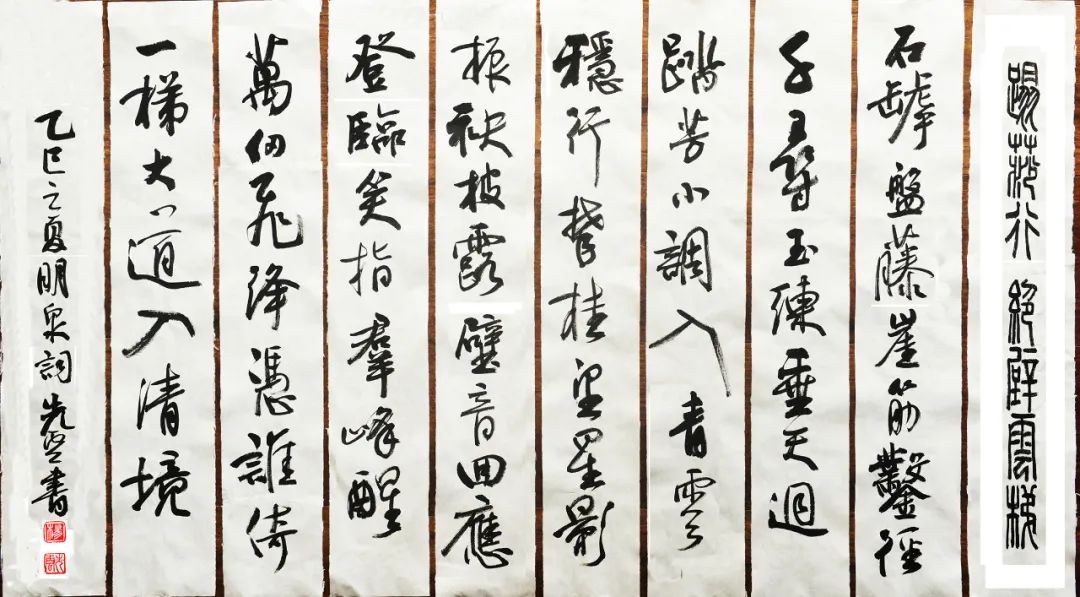 蹋莎行 絕壁雲梯
石罅盤藤崖筋鑿徑
千尋玉練垂天迥
踏芳小調入青雲
穩行攀桂望星影
振袂披露壁音回應
登臨笑指羣峰醒
萬仞飛降憑誰倚
一梯大道入清境
乙巳之夏明泉詞 書